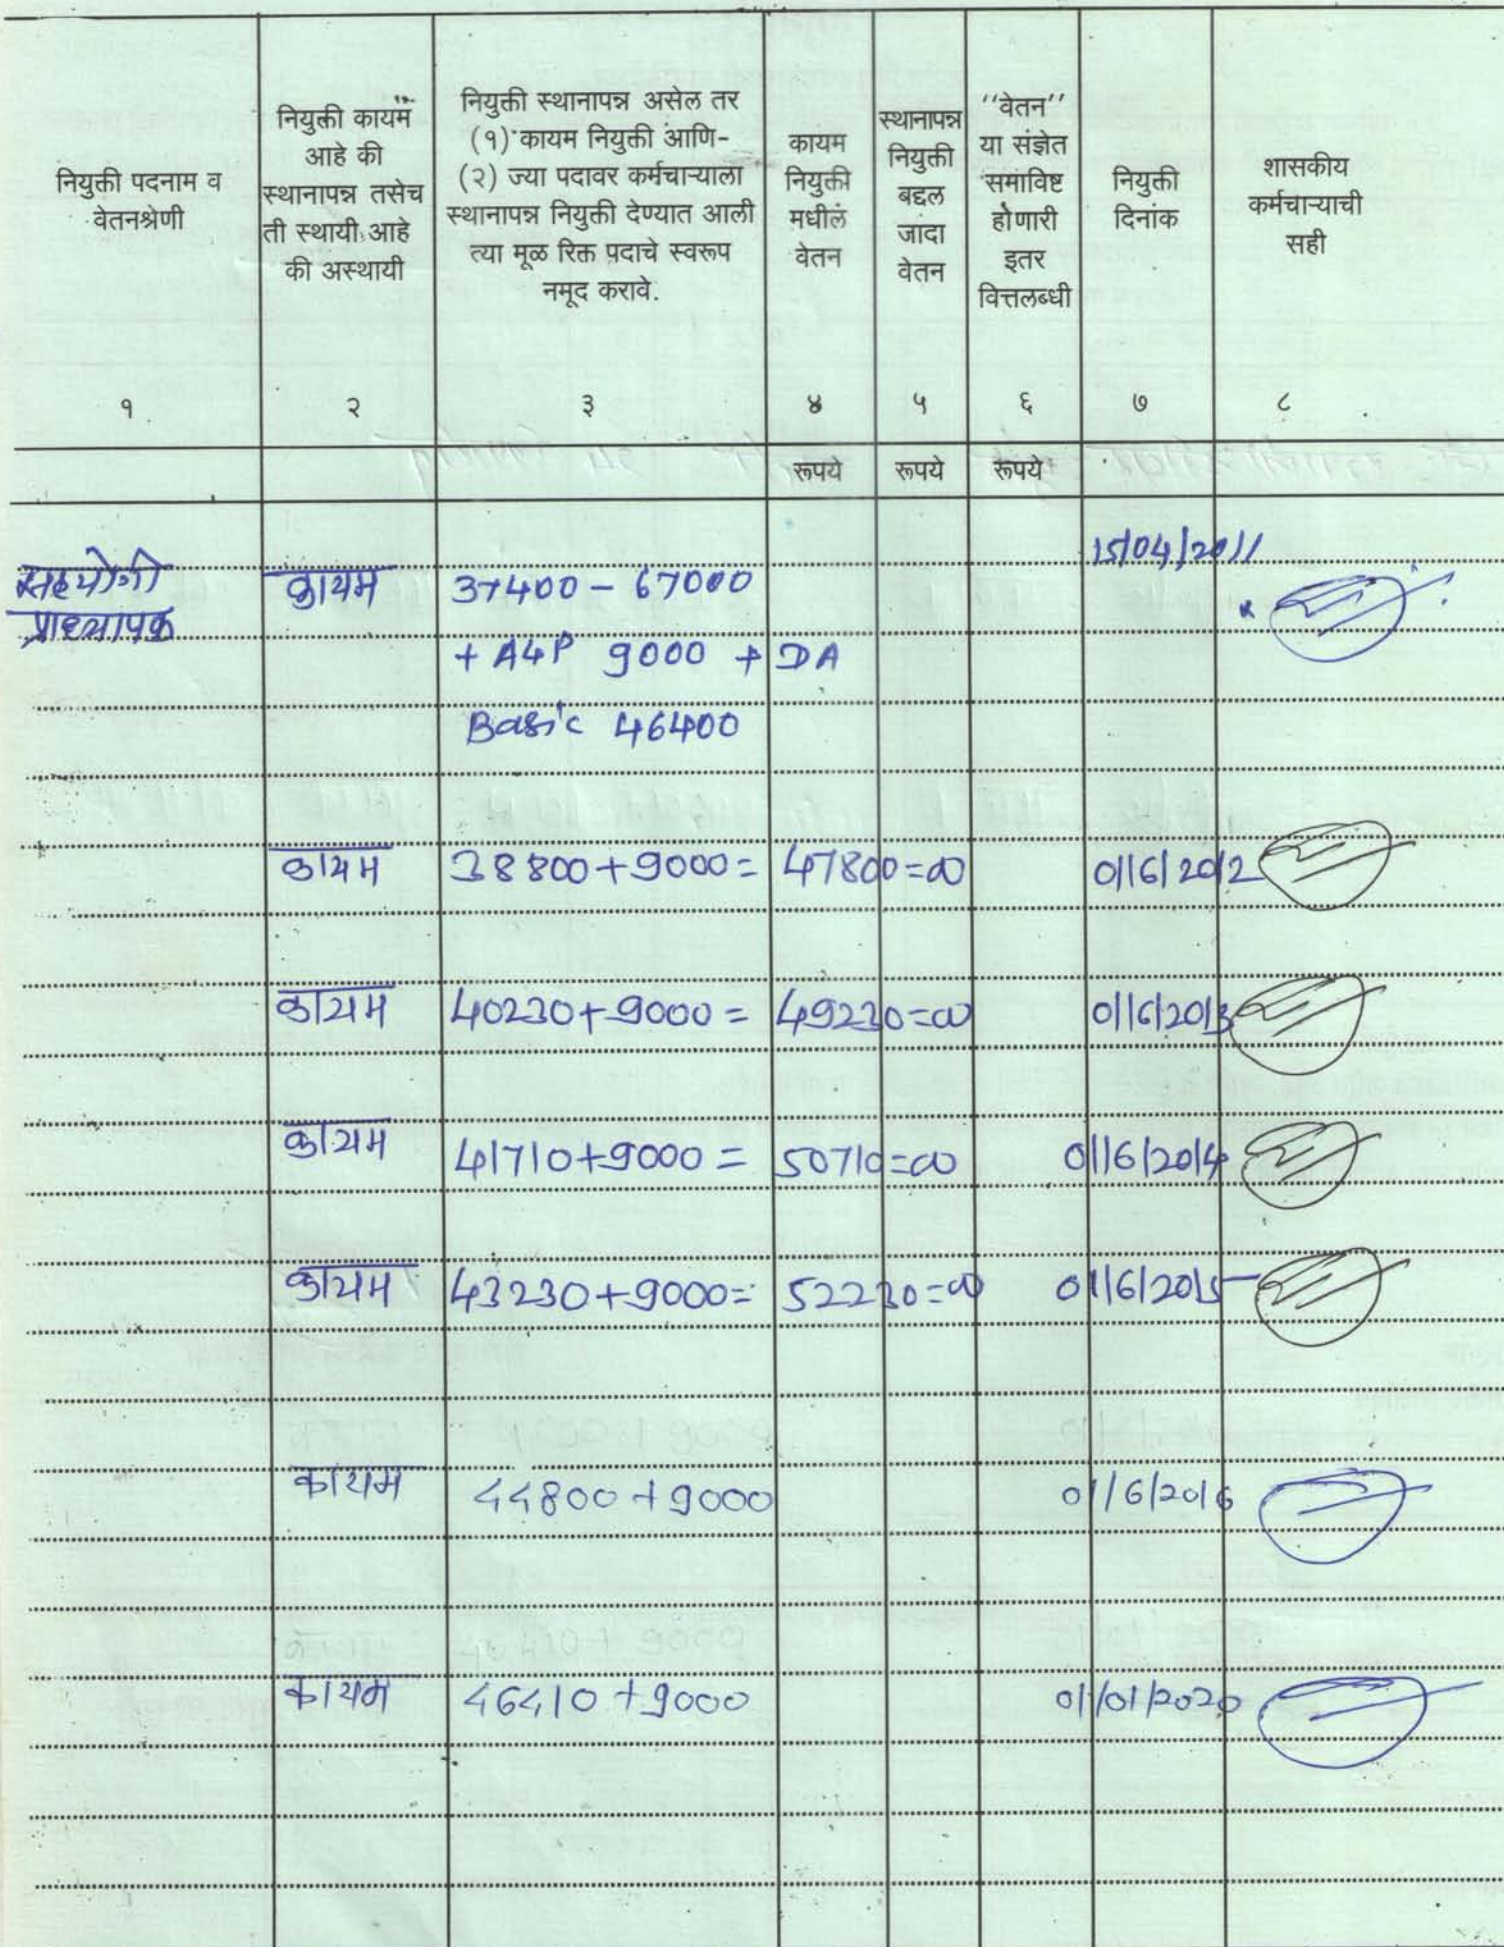 नियुक्ती पदनाम व
वेतनश्रेणी
नियुक्ती कायम
आहे की
स्थानापन्न तसेच
ती स्थायी आहे
की अस्थायी
नियुक्ती स्थानापन्न असेल तर
(१) कायम नियुक्ती आणि-
(२) ज्या पदावर कर्मचाऱ्याला
स्थानापन्न नियुक्ती देण्यात आली
त्या मूळ रिक्त पदाचे स्वरूप
नमूद करावे.
कायम
नियुक्ती
मधील
वेतन
स्थानापन्न
नियुक्ती
बद्दल
जादा
वेतन
"वेतन"
या संज्ञेत
समाविष्ट
होणारी
इतर
वित्तलब्धी
नियुक्ती
दिनांक
शासकीय
कर्मचाऱ्याची
सही
१ २ ३ ४ ५ ६ ७ ८
रूपये रूपये रूपये
15/04/2011
सहयोगी कायम 37400 - 67000
प्राध्यापक
+ AGP 9000 + DA
Basic 46400
कायम 38800+9000= 47800=00 01/6/2012
कायम 40230+9000= 49230=00 01/6/2013
कायम 41710+9000= 50710=00 01/6/2014
कायम 43230+9000= 52230=00 01/6/2015
कायम 44800+9000 01/6/2016
कायम 46410+9000 01/01/2020